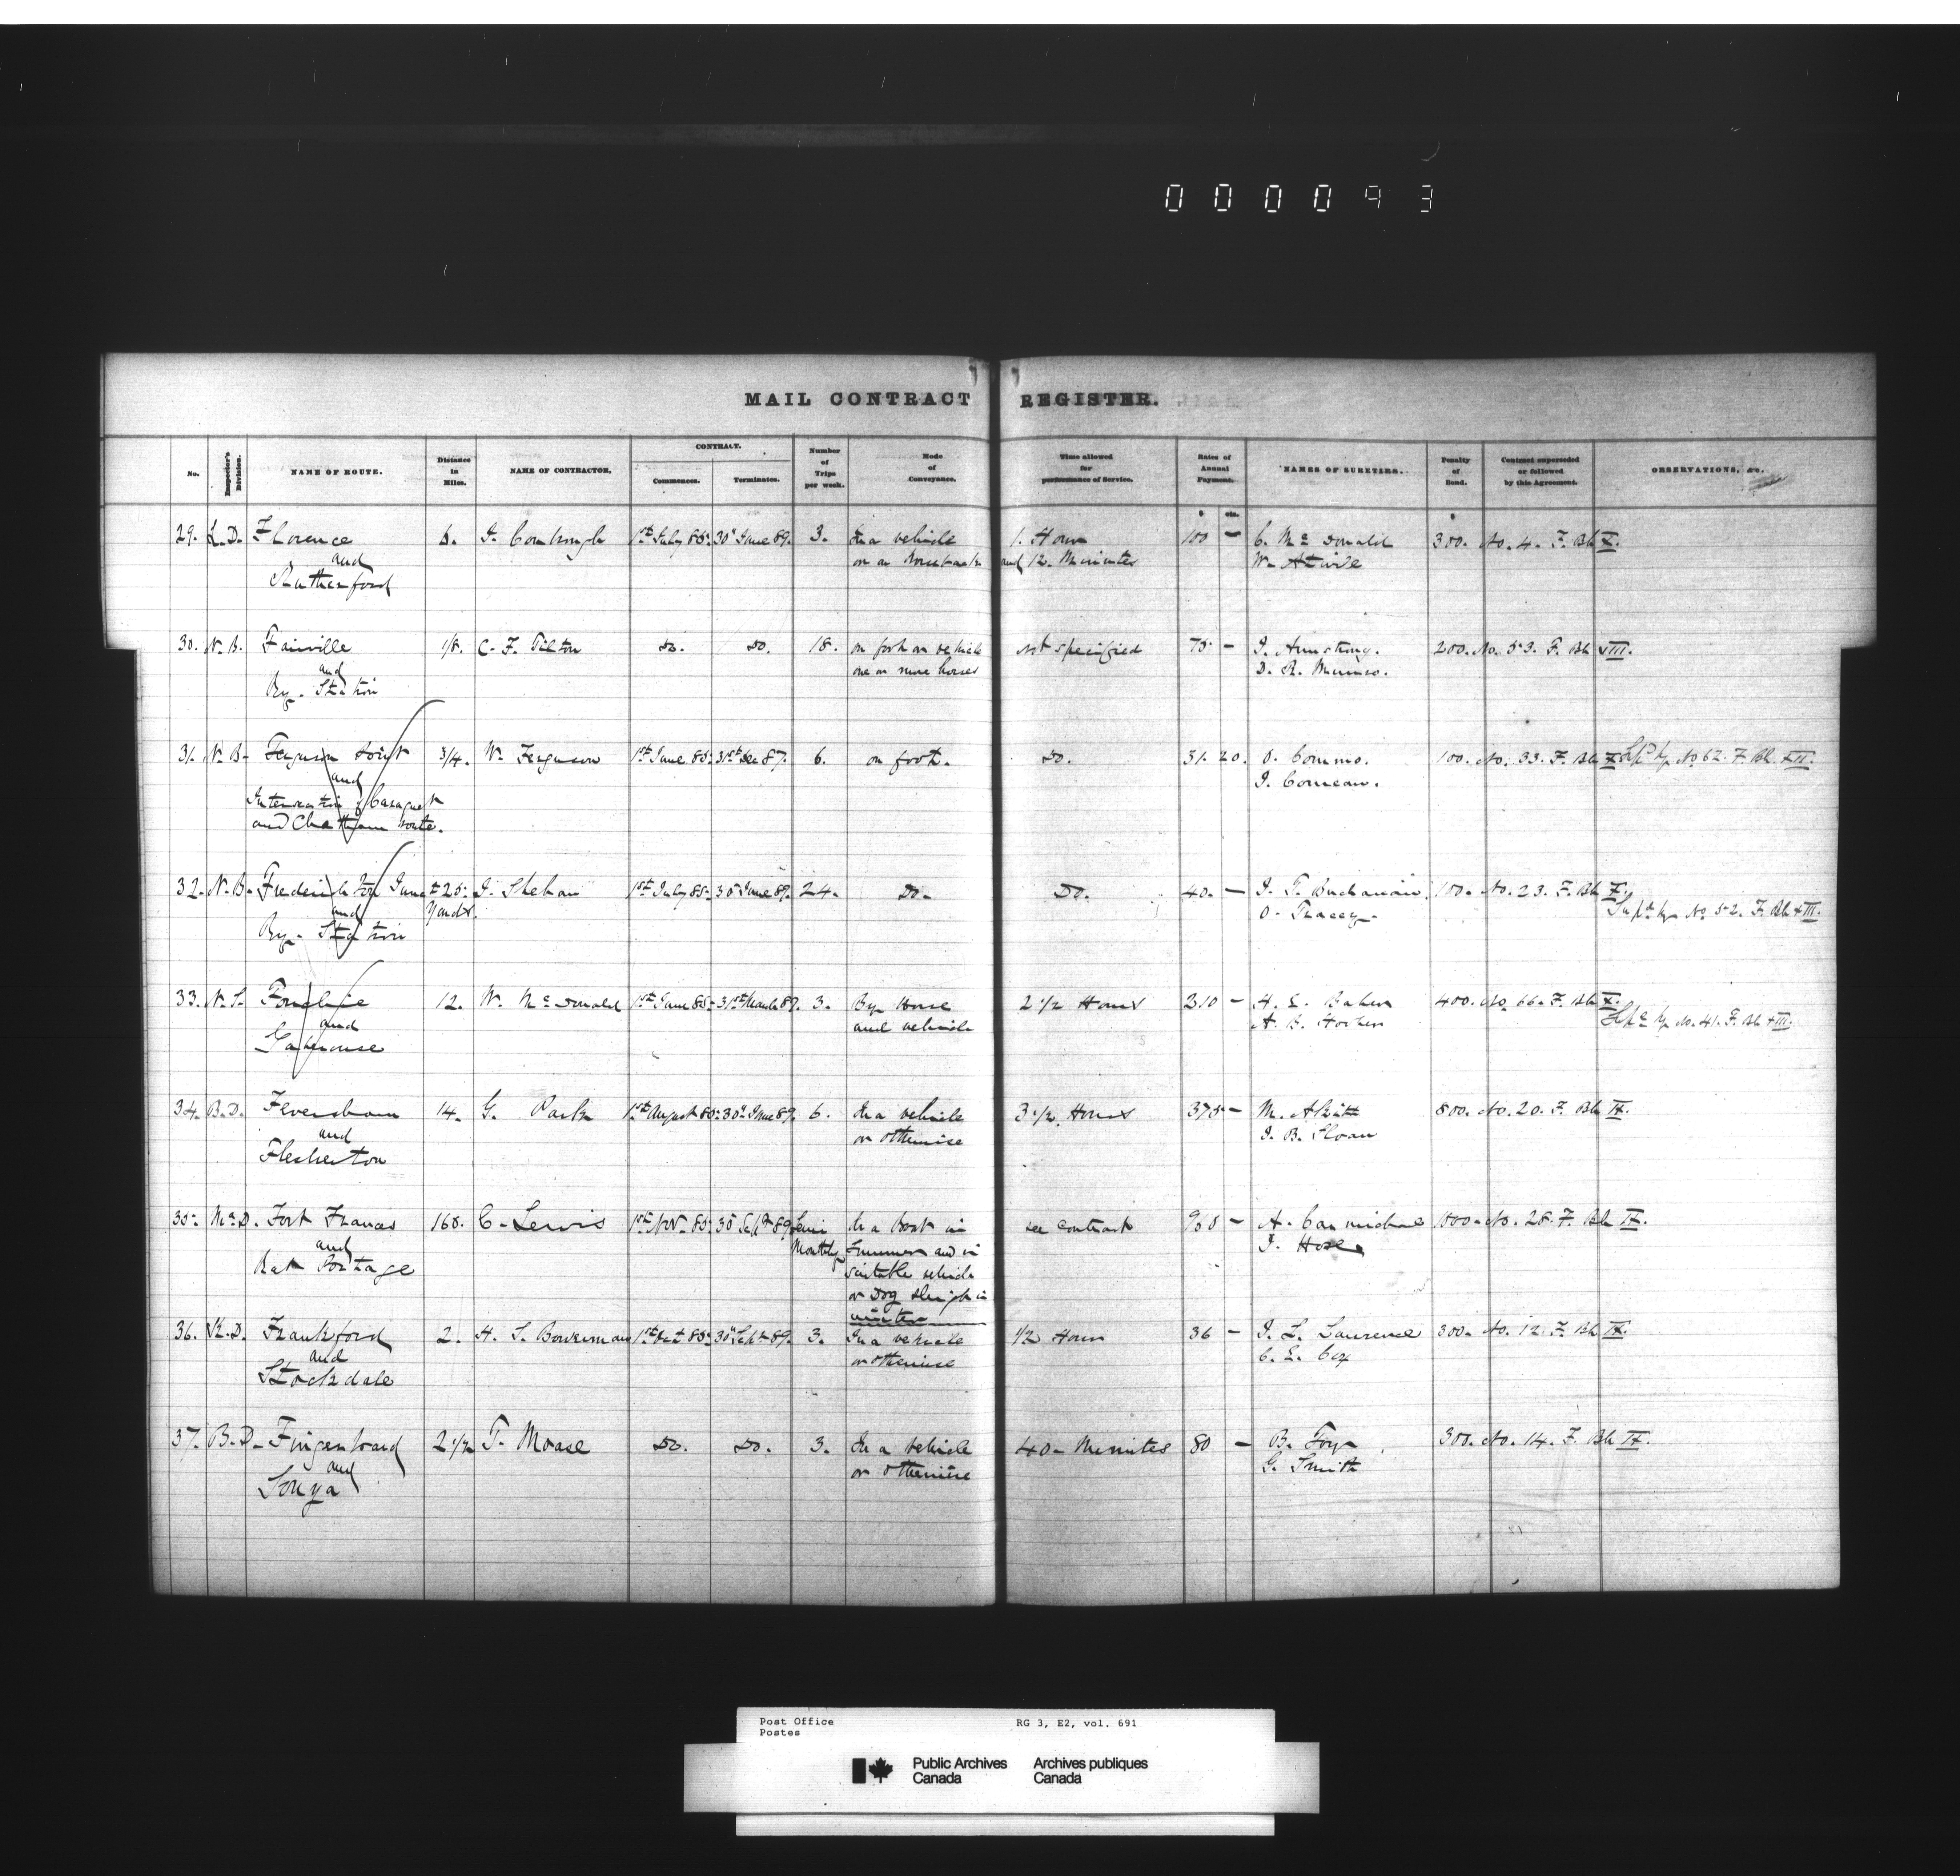 000093
MAIL CONTRACT REGISTER.
No. Inspector's Division. NAME OF ROUTE. Distance in Miles. NAME OF CONTRACTOR. CONTRACT. Commences. Terminates. Number of Trips per week. Mode of Conveyance. Time allowed for performance of Service. Rates of Annual Payment. NAMES OF SURETIES. Penalty of Bond. Contract superseded or followed by this Agreement. OBSERVATIONS, &c.
$ cts. $
29. L.D. Florence 1st July 85. 30" June 89. 3. In a vehicle 1. Hour 100 - C. Mc Donald 300. No. 4. F. Bk X.
and or on horseback and 12. Minutes
Rutherford
30. N.B. Fairville 1/8. C. F. Tilton Do. Do. 18. on foot or vehicle not specified 75 - J. Armstrong. 200. No. 53. F. Bk VIII.
and one or more horses D. R. Munro.
Ry. Station
31. N.B. Ferguson Point 3/4. W. Ferguson 1st June 85. 31st Dec 87. 6. on foot. Do. 31. 20. 100. No. 33. F. Bk X. Spd by No 62. F. Bk. XII.
and J. Comeau.
Intersection of Caraquet
and Chatham route.
32. N.B. Fredericton June 25. J. Shehan 1st July 85. 30 June 89. 24. Do. Do. 40. - J. T. Buchanan. 100. No. 23. F. Bk X.
and Yards. O. Tracey. Supd by No 52. F. Bk XIII.
Ry. Station
33. N.S. 12. W. McDonald 1st June 85. 31st March 89. 3. By Horse 2 1/2 Hours 310 - 400. No. 66. F. Bk X.
and and vehicle Spd by No. 41. F. Bk XIII.
34. B.D. Feversham 14. G. Park 1st August 85. 30" June 89. 6. In a vehicle 3 1/2. Hours 375 - 800. No. 20. F. Bk IX.
and or otherwise J. B. Sloan
Flesherton
35. Ma.D. Fort Frances 168. C. Lewis 1st Nov. 85. 30 Sept 89. Semi In a boat in see contract - A. Carmichael No. 28. F. Bk IX.
and Monthly Summer and in J. Hose
Rat Portage suitable vehicle
or Dog sleigh in
winter
36. K.D. Frankford 2. H. S. Bowerman 1st Oct 85. 30" Sept 89. 3. In a vehicle 1/2 Hour 36 - J. L. Lawrence 300. No. 12. F. Bk IX.
and or otherwise C. E. Coy
Stockdale
37. B.D. Fingerboard 2 1/2 T. Moase Do. Do. 3. In a vehicle 40 - Minutes 80 - B. Foy 300. No. 14. F. Bk IX.
and or otherwise G. Smith
Sonya
Post Office RG 3, E2, vol. 691
Postes
Public Archives Archives publiques
Canada Canada